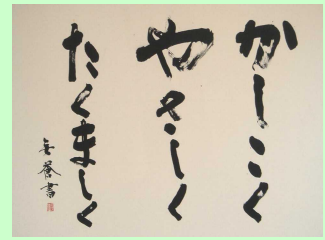 かしこく
やさしく
たくましく